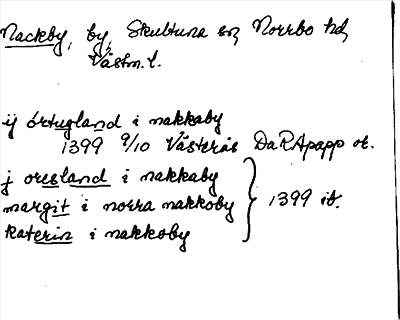 Nackby, by, Skultuna sn, Norrbo hd,
Västm. l.
ij örtugland i nakkaby
1399 9/10 Västerås DaRApapp or.
j oresland i nakkaby
margit i norra nakkoby
katerin i nakkoby
1399 ib.